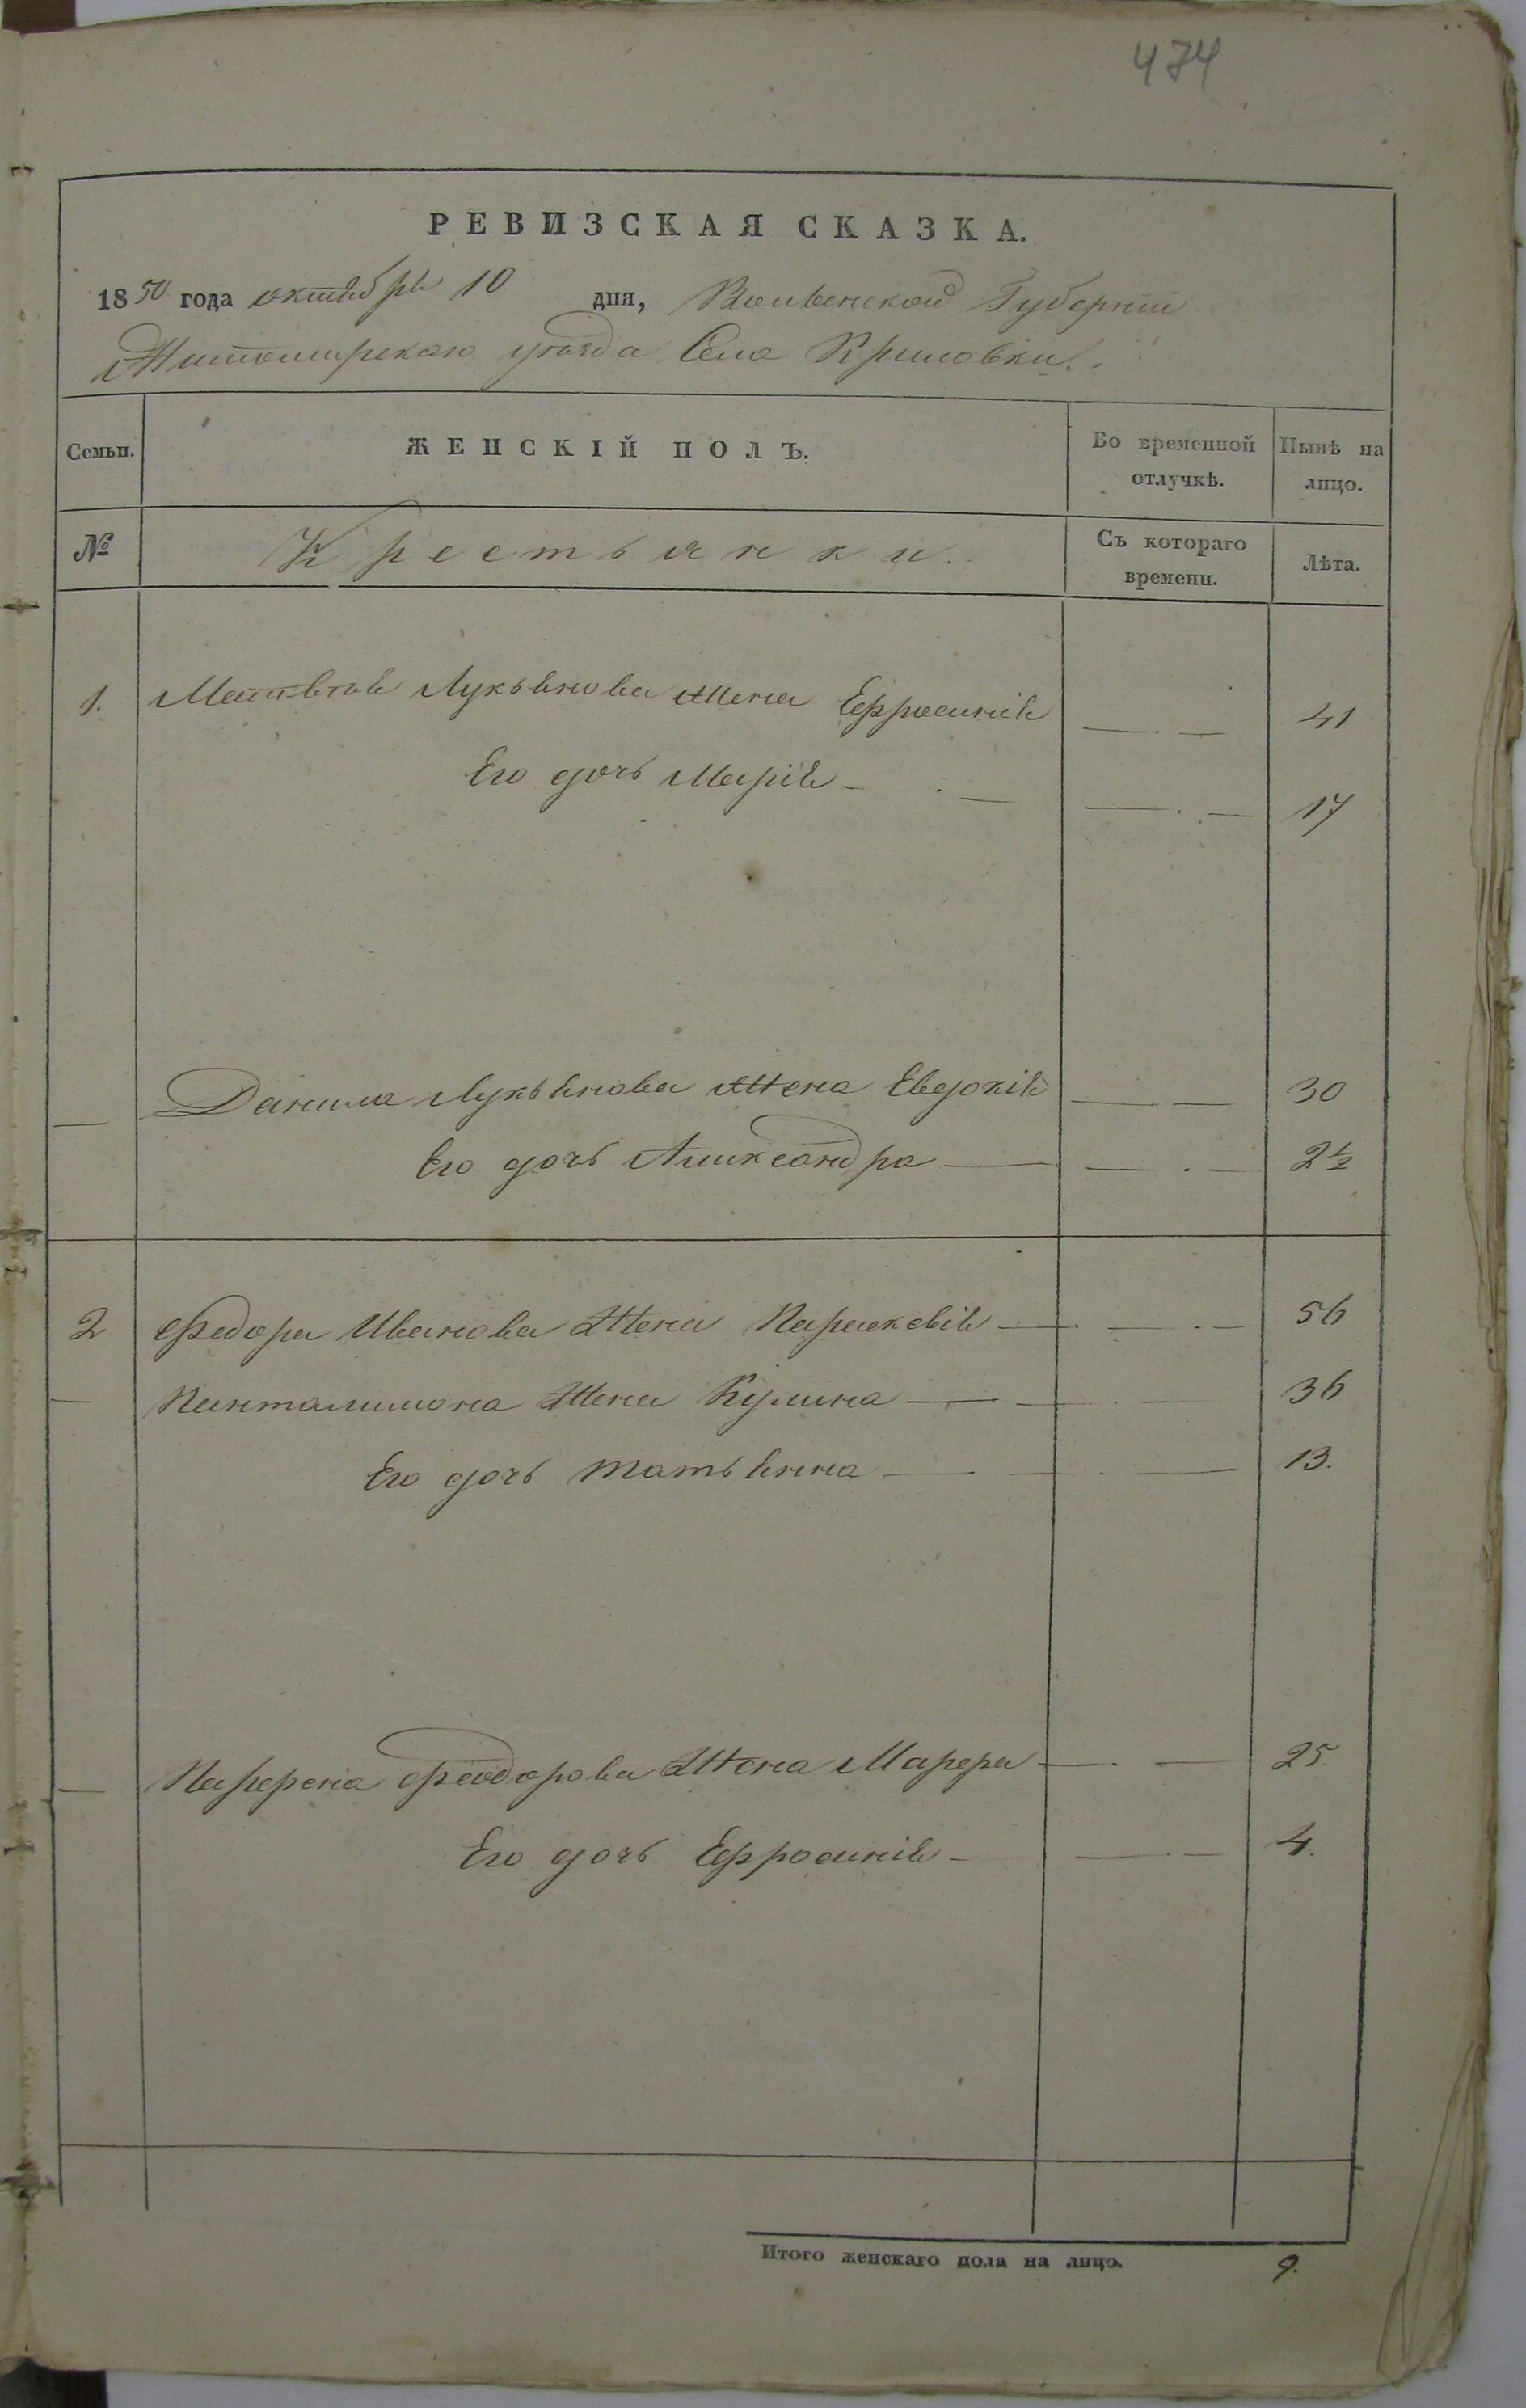 474
РЕВИЗСКАЯ СКАЗКА.
1850 года октября 10 дня, Волынской Губерніи
Житомирскаго уѣзда Села Криловки.
Семьи. ЖЕНСКІЙ ПОЛЪ. Во временной отлучкѣ. Нынѣ на лицо.
№ Крестьянки. Съ котораго времени. Лѣта.
1. Матвѣя Лукьянова жена Ефросинія — . — 41
Его дочь Марія — . — — . — 17
— Данила Лукьянова жена Евдокія — — 30
Его дочь Александра — — . — 2 1/2
2 Федора Иванова жена Параскевія — . — . — 56
— Панталимона жена Кулина — — . — 36
Его дочь Татьянна — — . — 13.
— Парфена Феодорова жена Марфа — . — 25.
Его дочь Ефросинія — — . — 4.
Итого женскаго пола на лицо. 9.